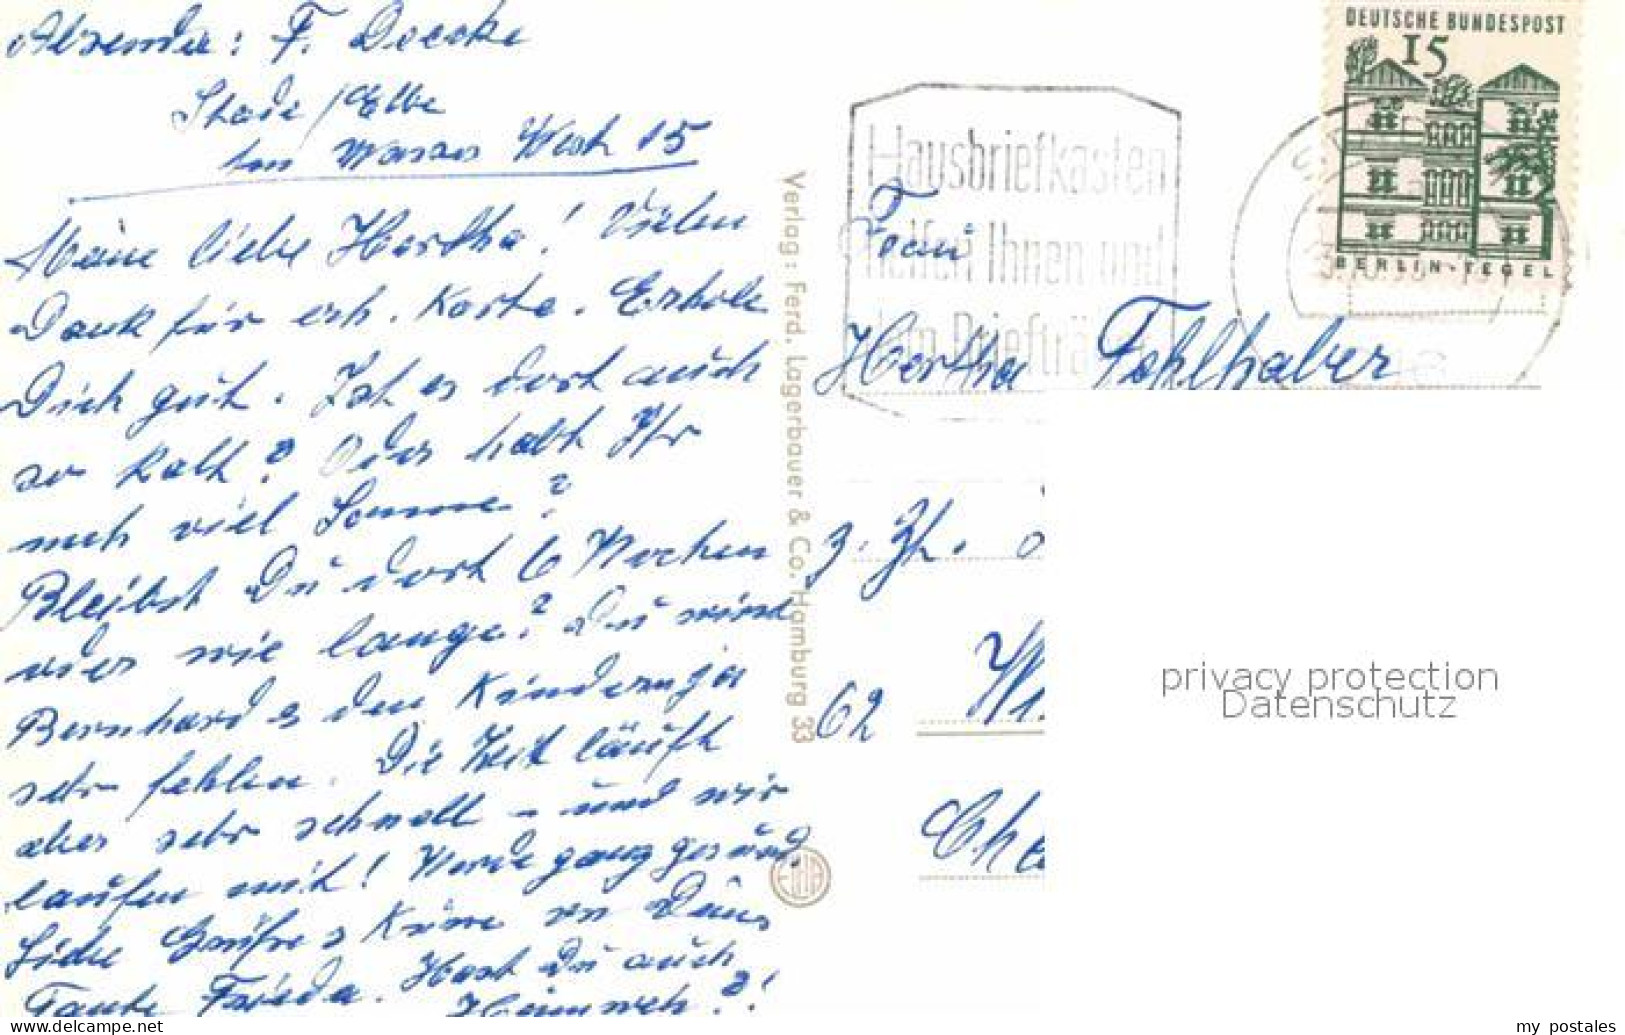 Absender: F. Doecke
Stade / Elbe
am Wasser West 15
Meine liebe Hertha! Vielen
Dank für erh. Karte. Erhole
Dich gut. Ist es dort auch
so kalt? Oder habt Ihr
noch viel Sonne?
Bleibst Du dort 6 Wochen
oder wie lange? Du wirst
Bernhard & den Kindern ja
sehr fehlen. Die Zeit läuft
aber sehr schnell - und wir
laufen mit! Werde ganz gesund.
Liebe Grüße & Küsse von Deine
Tante Frieda. Hast Du auch
Heimweh?!
Verlag: Ferd. Lagerbauer & Co. Hamburg 33
Hausbriefkasten
helfen Ihnen und
Briefträ
DEUTSCHE BUNDESPOST
15
BERLIN-TEGEL
Frau
Hertha Fehlhaber
z. Zt.
62 Wi
Cha
privacy protection
Datenschutz
www.delcampe.net
my_postales